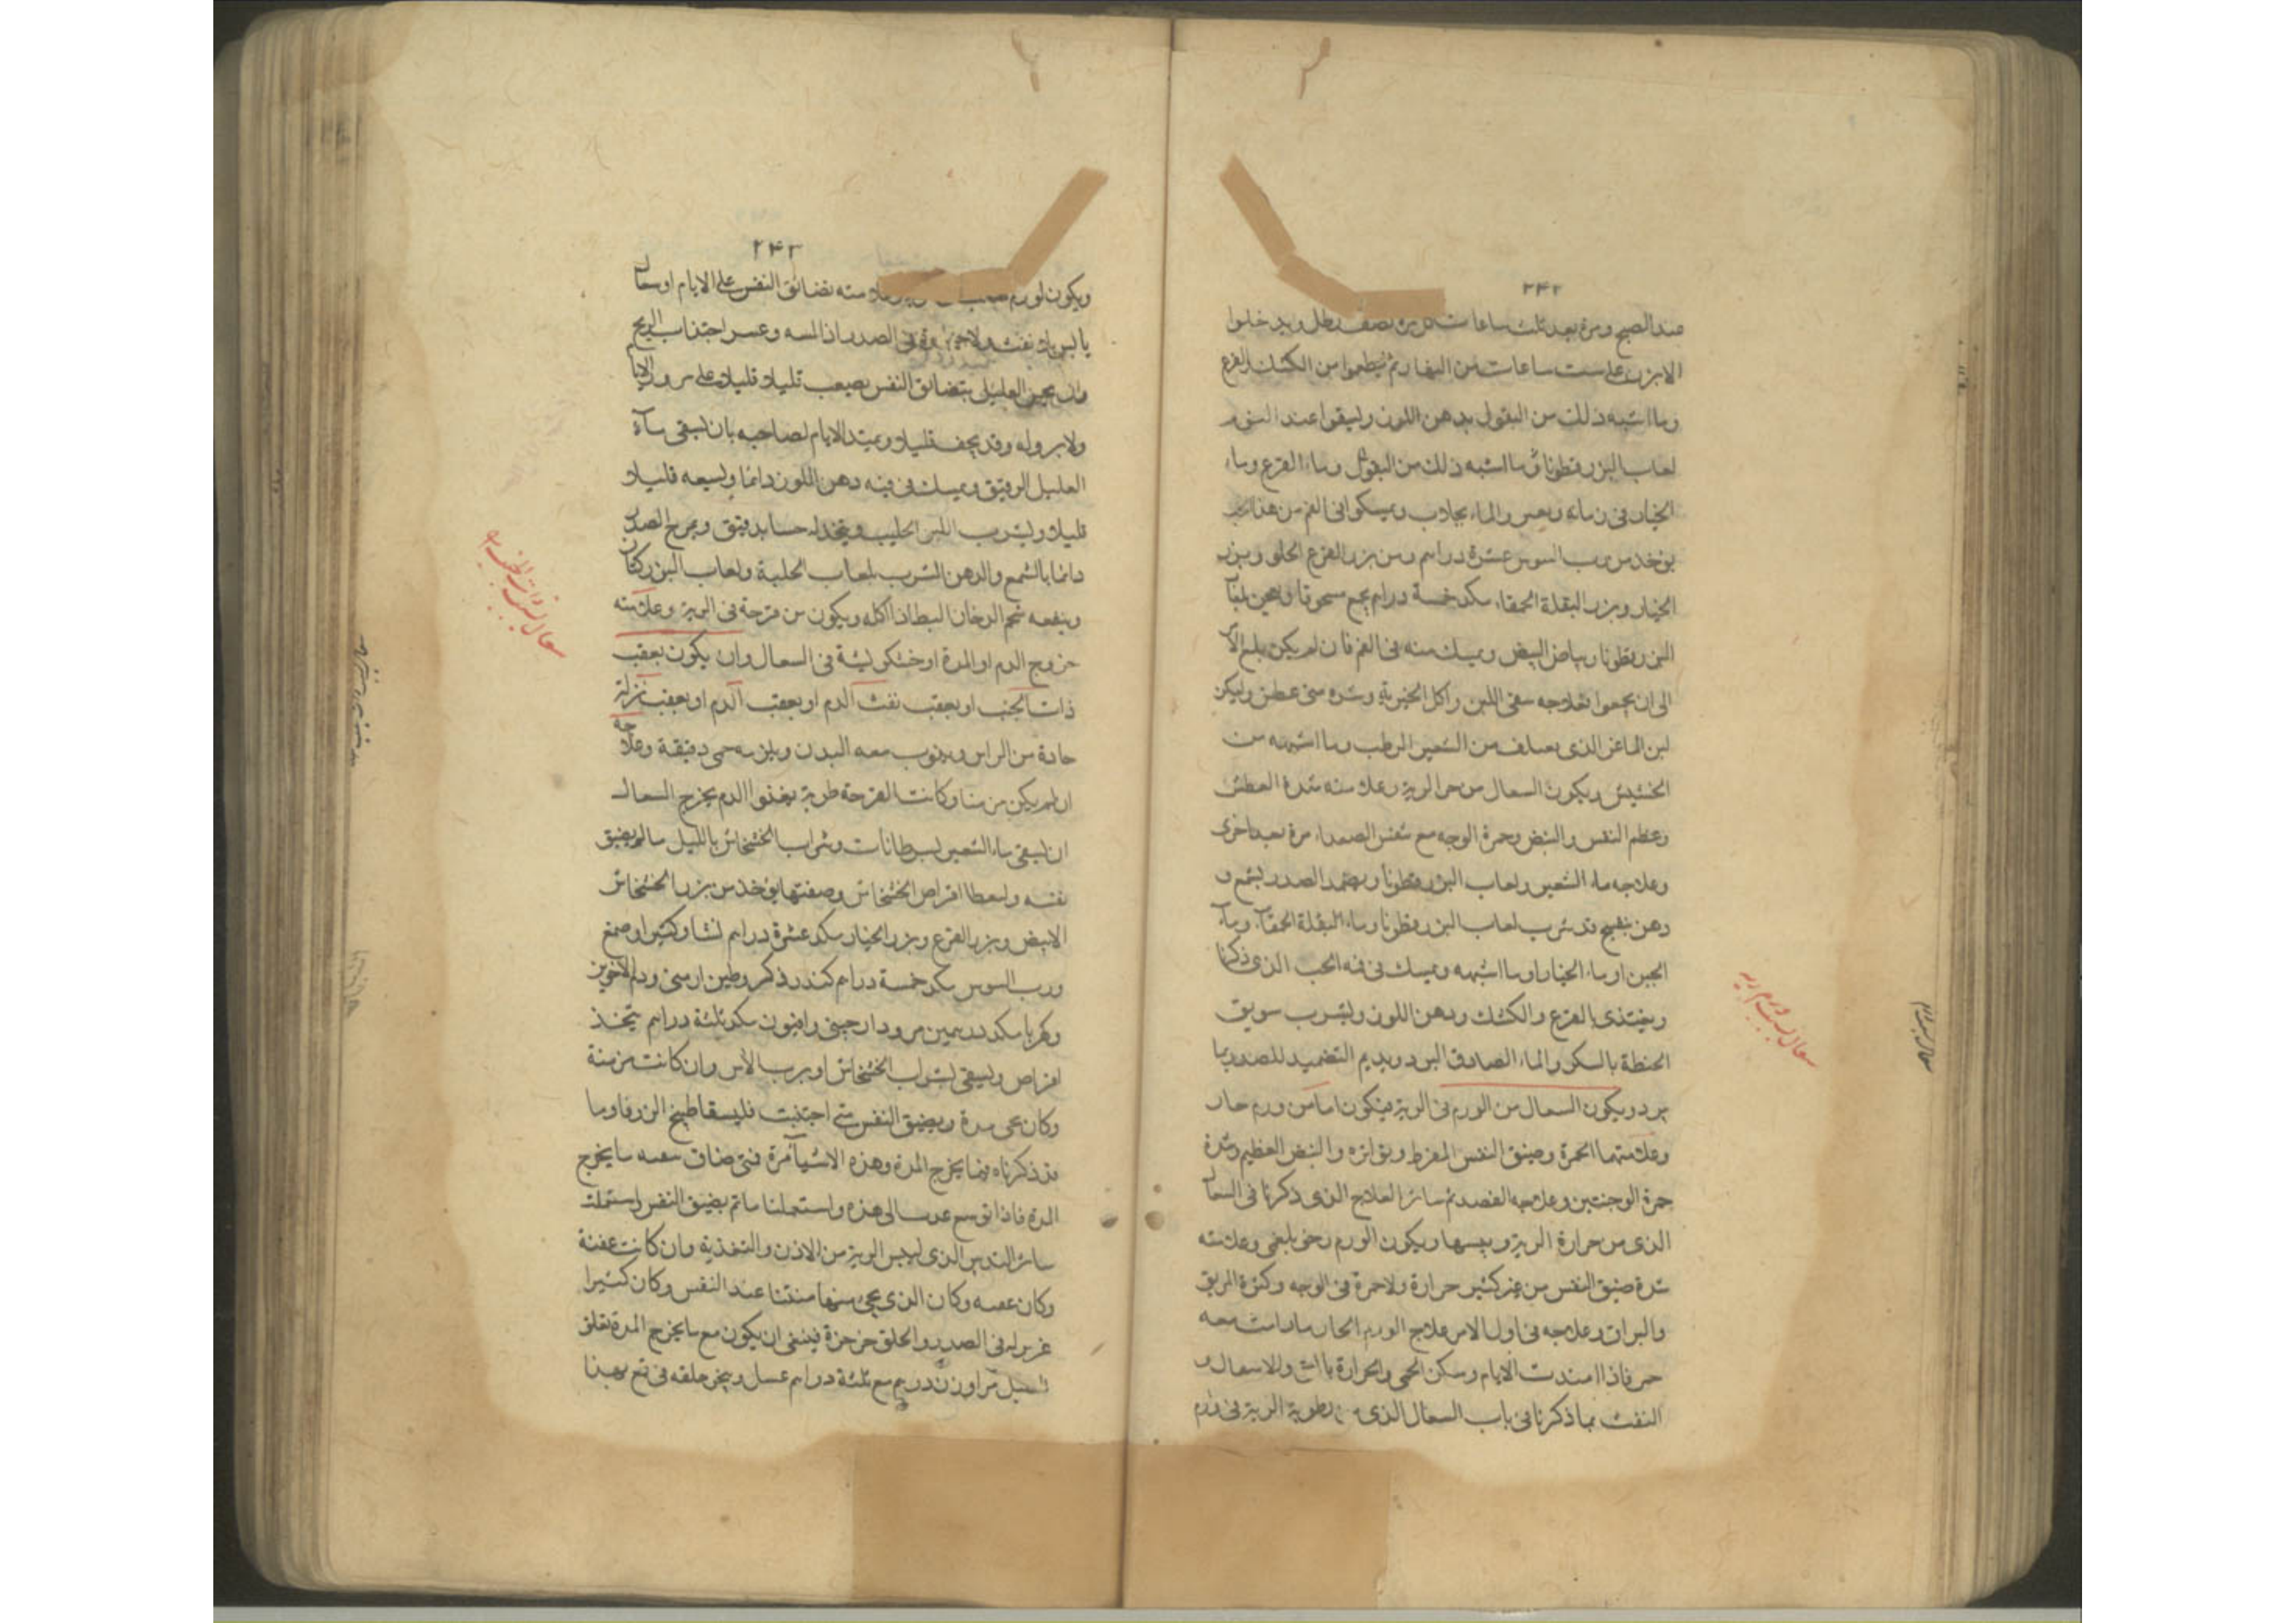 ۲۴۲
عند الصبح ومرة بعد ثلث ساعات كل مرة نصف رطل ويدخلوا
الابزن على ست ساعات من النهار ثم يطعموا من الكشك والقرع
وما اشبه ذلك من البقول بدهن اللوز وليسقوا عند النوم
لعاب البزرقطونا وما اشبه ذلك من البقول وماء القرع وماء
الخيار في والماء بجلاب ويمسكوا في الفم من هذا
يؤخذ من رب السوس عشرة دراهم ومن بزر القرع الحلو وبزر
الخيار وبزر البقلة الحمقاء مكد خمسة دراهم يجمع مسحوقا ويعجن بلعاب
البزرقطونا وبياض البيض ويمسك منه في الفم فان لم يكن بلغ الامر
الى ان يحموا فعلاجه سقي اللبن واكل الخبز به وشربه متى عطش وليكن
لبن الماعز الذي يعلف من الشعير الرطب وما اشبهه من
الحشيش ويكون السعال من حر الرية وعلامته شدة العطش
وعظم النفس والنبض وحمرة الوجه مع تنفس الصعداء مرة بعد اخرى
وعلاجه ماء الشعير ولعاب البزرقطونا ويضمد الصدر بشمع و
دهن بنفسج قد شرب لعاب البزرقطونا وماء البقلة الحمقاء وماء
الجبن او ماء الخيار او ما اشبهه ويمسك في فيه الحب الذي ذكرنا
ويغتذى بالقرع والكشك ودهن اللوز وليشرب سويق
الحنطة بالسكر والماء الصادق البرد ويديم التضميد للصدر بما
يبرد ويكون السعال من الورم في الرية فيكون اما من ورم حار
وعلامتهما الحمرة وضيق النفس المفرط وتواتره والنبض العظيم وشدة
حمرة الوجنتين وعلاجه الفصد ثم سائر العلاج الذي ذكرنا في السعال
الذي من حرارة الرية ويبسها ويكون الورم رخى بلغمى وعلامته
شدة ضيق النفس من غير كثير حرارة ولا حمرة في الوجه وكثرة الريق
والبزاق وعلاجه في اول الامر علاج الورم الحار ما دامت معه
حمى فاذا امتدت الايام وسكن الحمى والحرارة والاسعال و
النفث بما ذكرنا في باب السعال الذي من رطوبة الرية في ورم
سعال بسبب ورم ريه
۲۴۳
ويكون لورم صلب في علامته تضائق النفس على الايام او سعال
يابس بلا نفث ولا حمى في الصدر اذا لمسه وعسر اجتذاب الريح
وان يحس العليل بتضائق النفس يصعب قليلا قليلا على مرور الايام
ولا برو له وقد يخف قليلا ويمتد الايام لصاحبه بان يسقى ماء
العسل الرقيق ويمسك في فيه دهن اللوز دائما وليسعه قليلا
قليلا وليشرب اللبن الحليب ويتخذ له حسا بدقيق ويمرخ الصدر
دائما بالشمع والدهن الشرب بلعاب الحلبة ولعاب البزركتان
وينفعه شحم الدخان البط اذا اكله ويكون من قرحة في الرية وعلامته
خروج الدم او المدة او خشكريشة في السعال وان يكون بعقب
ذات الجنب او بعقب نفث الدم او بعقب الدم او بعقب نزلة
حادة من الراس ويذوب معه البدن ويلزمه حمى دقيقة وعلاجه
ان لم يكن مزمنا وكانت القرحة طرية يغذوا الدم يخرج السعال
ان يسقى ماء الشعير بسرطانات وشراب الخشخاش بالليل ما لم يضيق
نفسه واعطا اقراص الخشخاش وصفتها يؤخذ من بزر الخشخاش
الابيض وبزر القرع وبزر الخيار مكد عشرة دراهم نشا وكثيرا وصمغ
ورب السوس مكد خمسة دراهم كندر ذكر وطين ارمنى ودم الاخوين
وكهربا مكد درهمين مر ودارچينى وافيون مكد ثلثة دراهم يتخذ
اقراص ويسقى بشراب الخشخاش او برب الاس وان كانت مزمنة
وكان يجى مدة ويضيق النفس متى اجتنبت فليسقا طبيخ الزوفا وما
قد ذكرناه فيما يخرج المدة وهذه الاشياء مرة فمتى ضاق نفسه ما يخرج
المدة فاذا توسع عدنا الى هذه واستعملنا ما لم يضيق النفس واستعملت
سائر التدبير الذي ليبس الرية من الابزن والتغذية وان كانت عفنة
وكان عفنه وكان الذي يجىء منها منتنا عند النفس وكان كثيرا
غزيرا في الصدر والحلق خرخرة فينبغى ان يكون مع ما يخرج المدة تعلق
العسل مرا وزن درهم مع ثلثة دراهم عسل ويبخر حلقه في قمع بهذا